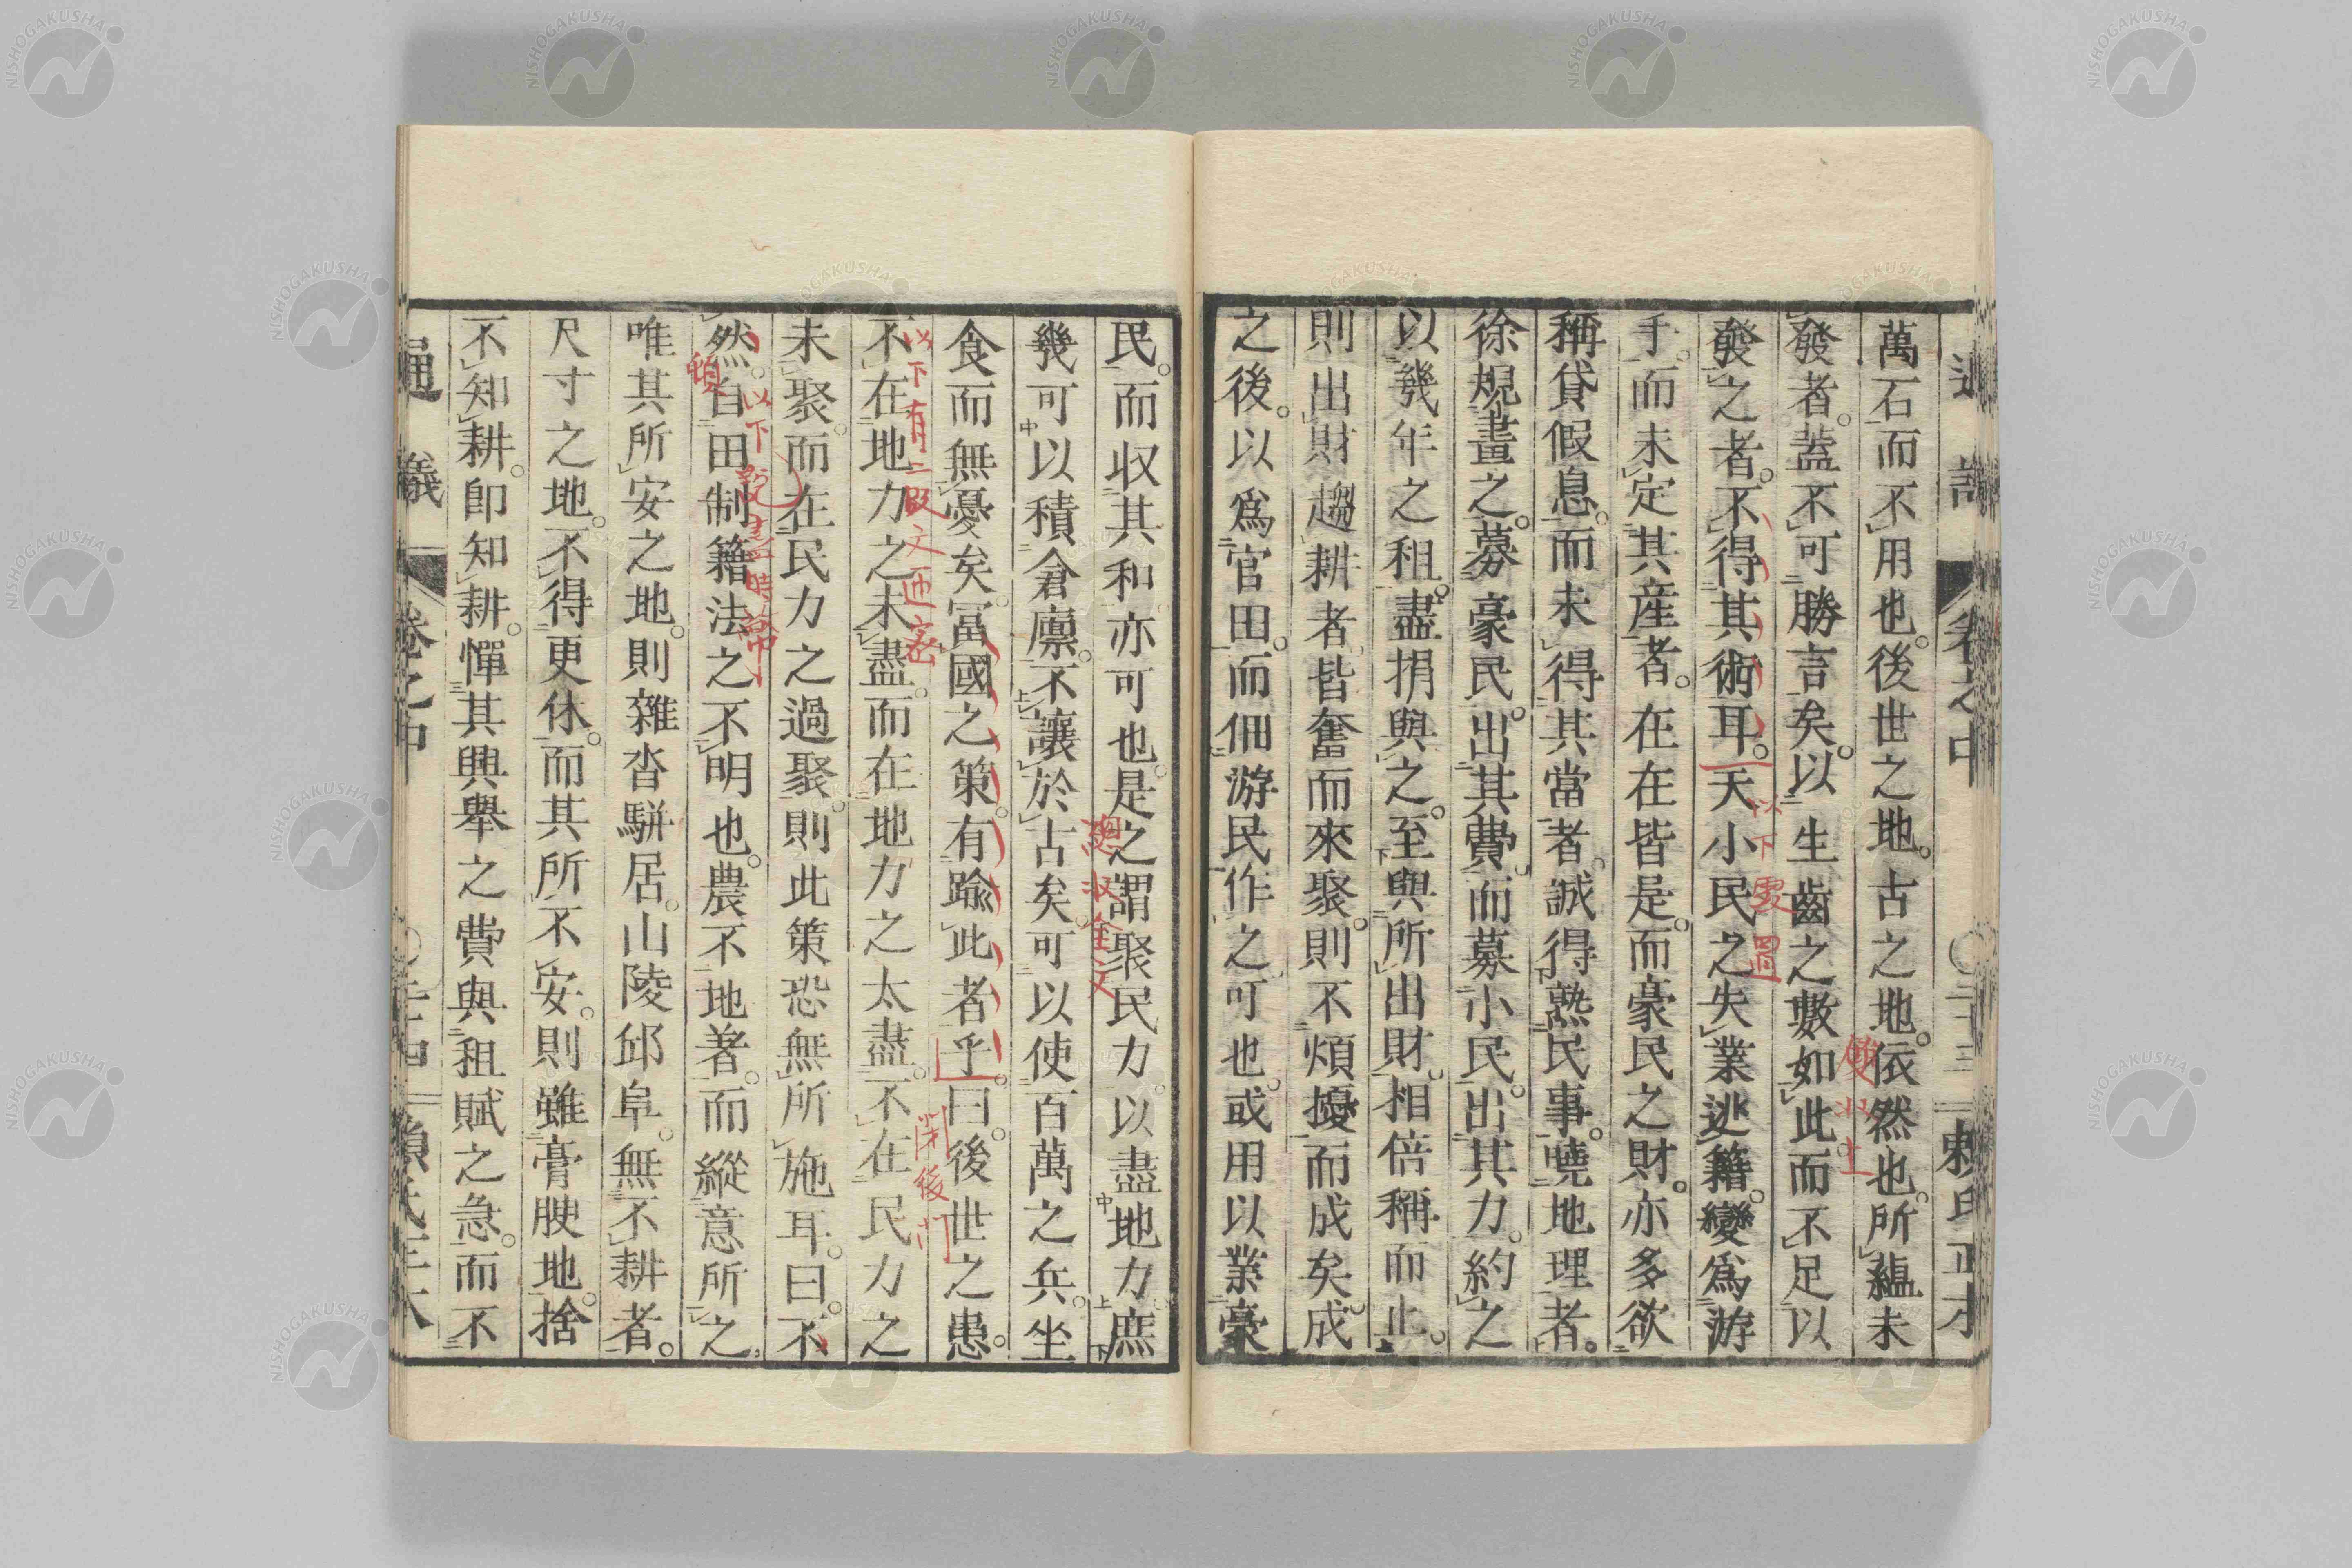 萬石而不用也。後世之地。古之地。依然也。所蘊未
發者。蓋不可勝言矣。以生齒之數如此而不足以
發之者。不得其術耳。天小民之失業逃籍。變爲游
手。而未定其產者。在在皆是。而豪民之財。亦多欲
稱貸假息。而未得其當者。誠得熟民事。曉地理者。
徐規畫之。募豪民。出其費。而募小民。出其力。約之
以幾年之租。盡捐與之。至與所出財。相倍稱而止。
則出財趨耕者皆奮而來聚。則不煩擾而成矣。成
之後。以爲官田。而佃游民作之可也。或用以業豪
民。而収其和亦可也。是之謂聚民力。以盡地力。庶
幾可以積倉廩。不讓於古矣。可以使百萬之兵。坐
食而無憂矣。冨國之策。有踰此者乎。曰。後世之患。
不在地力之未盡。而在地力之太盡。不在民力之
未聚。而在民力之過聚。則此策恐無所施耳。曰。不
然。自田制籍法之不明也。農不地著。而縱意所之。
唯其所安之地。則雜沓駢居。山陵邱阜。無不耕者。
尺寸之地。不得更休。而其所不安。則雖膏腴地。捨
不知耕。卽知耕。憚其興舉之費與租賦之急。而不
通議 卷之中 二十三
通議 卷之中 二十四 賴氏正本
以下更圖
總收全文
以下有二段文更密
開後门
NISHOGAKUSHA